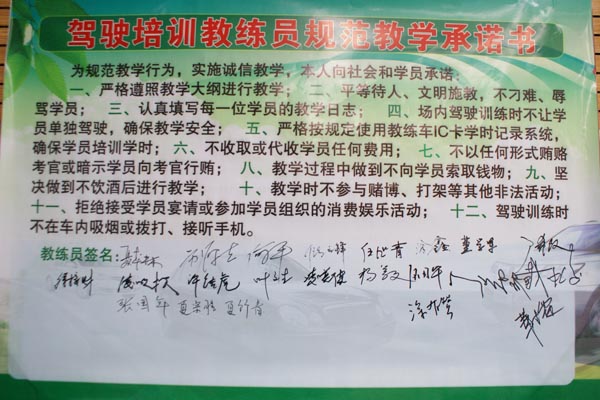 驾驶培训教练员规范教学承诺书
为规范教学行为，实施诚信教学，本人向社会和学员承诺：
一、严格遵照教学大纲进行教学； 二、平等待人、文明施教，不刁难、辱
骂学员； 三、认真填写每一位学员的教学日志； 四、场内驾驶训练时不让学
员单独驾驶，确保教学安全； 五、严格按规定使用教练车IC卡学时记录系统，
确保学员培训学时； 六、不收取或代收学员任何费用； 七、不以任何形式贿赂
考官或暗示学员向考官行贿； 八、教学过程中做到不向学员索取钱物； 九、坚
决做到不饮酒后进行教学； 十、教学时不参与赌博、打架等其他非法活动；
十一、拒绝接受学员宴请或参加学员组织的消费娱乐活动； 十二、驾驶训练时
不在车内吸烟或拨打、接听手机。
教练员签名：